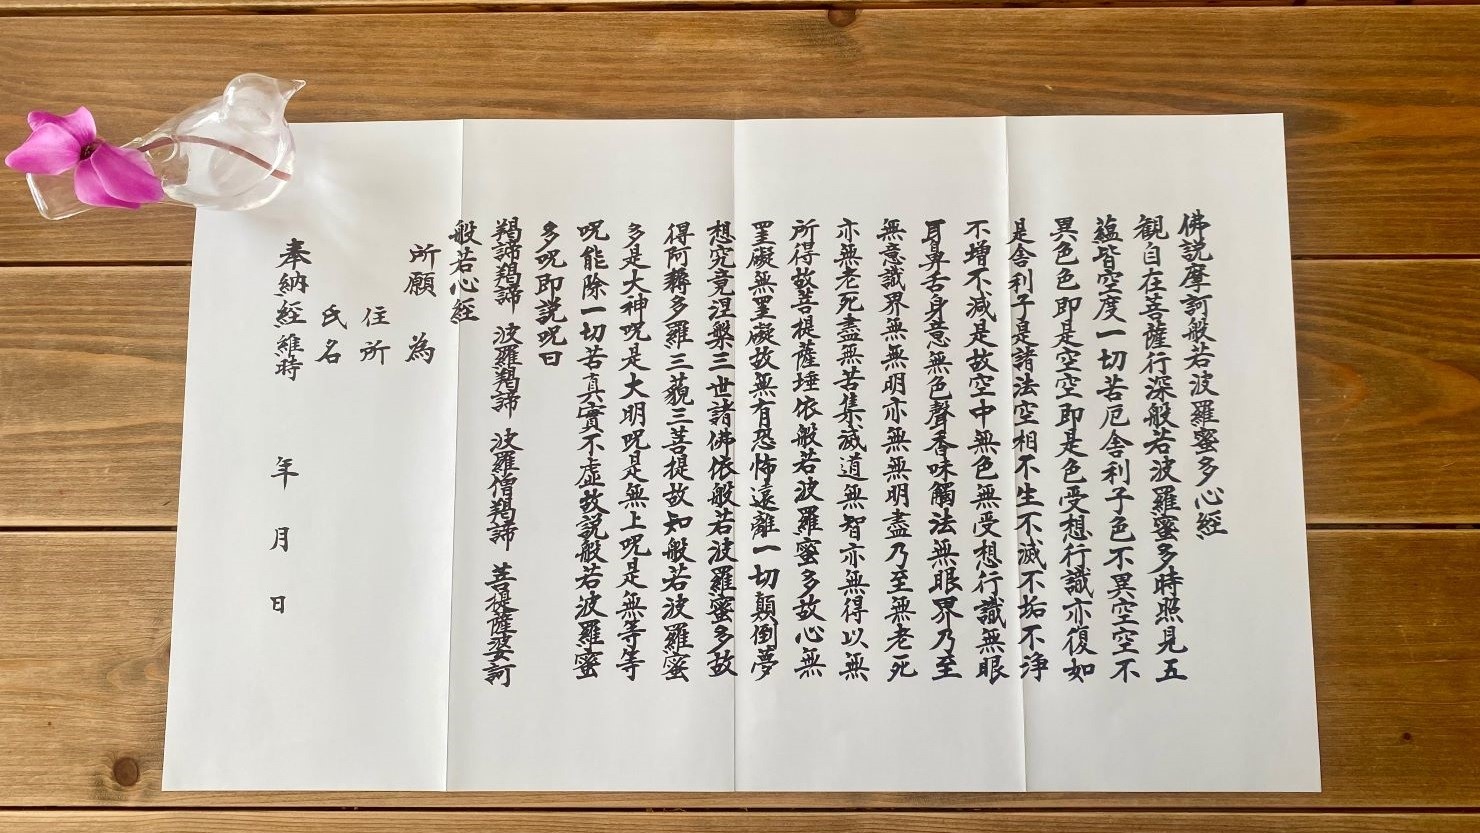 佛説摩訶般若波羅蜜多心經
観自在菩薩行深般若波羅蜜多時照見五
蘊皆空度一切苦厄舎利子色不異空空不
異色色即是空空即是色受想行識亦復如
是舎利子是諸法空相不生不滅不垢不浄
不増不減是故空中無色無受想行識無眼
耳鼻舌身意無色聲香味觸法無眼界乃至
無意識界無無明亦無無明盡乃至無老死
亦無老死盡無苦集滅道無智亦無得以無
所得故菩提薩埵依般若波羅蜜多故心無
罣礙無罣礙故無有恐怖遠離一切顛倒夢
想究竟涅槃三世諸佛依般若波羅蜜多故
得阿耨多羅三藐三菩提故知般若波羅蜜
多是大神呪是大明呪是無上呪是無等等
呪能除一切苦真實不虚故説般若波羅蜜
多呪即説呪曰
羯諦羯諦 波羅羯諦 波羅僧羯諦 菩提薩婆訶
般若心經
所願 為
住所
氏名
奉納經維時 年 月 日